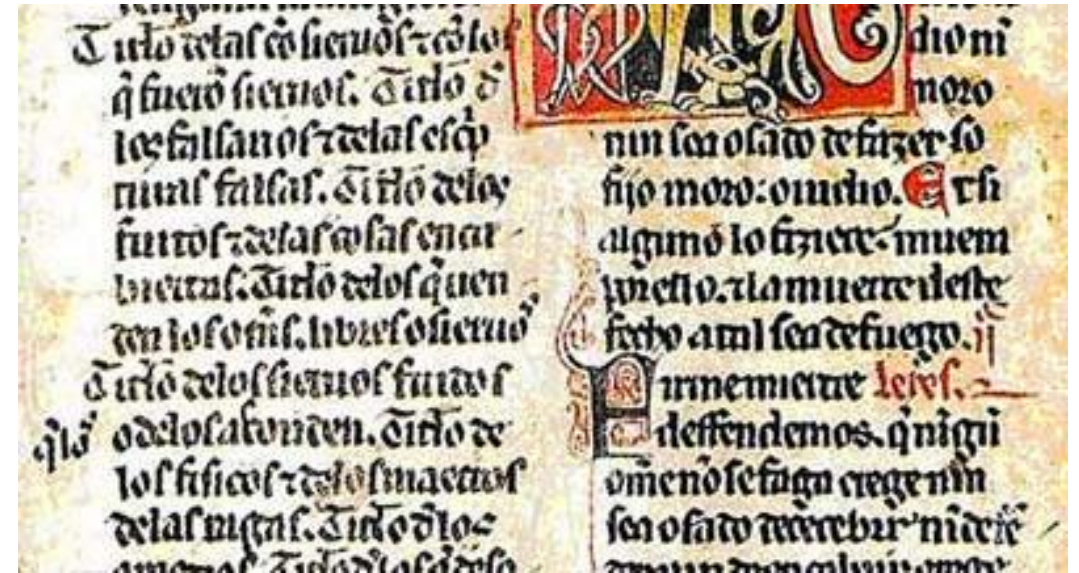 Titło delas co sieruos ⁊ cō los
q̃ fuerō sieruos. Titło d̃
los falsarios ⁊ delas esc̃p
turas falsas. Titłō delos
furtos ⁊ delas cosas encu
biertas. Titło delos q̃ uen
den los om̃s. libres o sieruos
Titłō delos sieruos fuidos
q̃ los o delos asconden. Titło de
los fisicos ⁊ delos maestros
delas plagas. Titło d̃los
dioni
moro
nin sea osado de fazer so
fijo moro: o iudio. Et si
alguno lo fiziere: muera
por ello. ⁊ la muerte deste
fecho atal sea de fuego. ij
Firmemientre leyes.
defendemos. q̃ nigũ
ome nō se faga erege nin
sea osado de recebir nī de